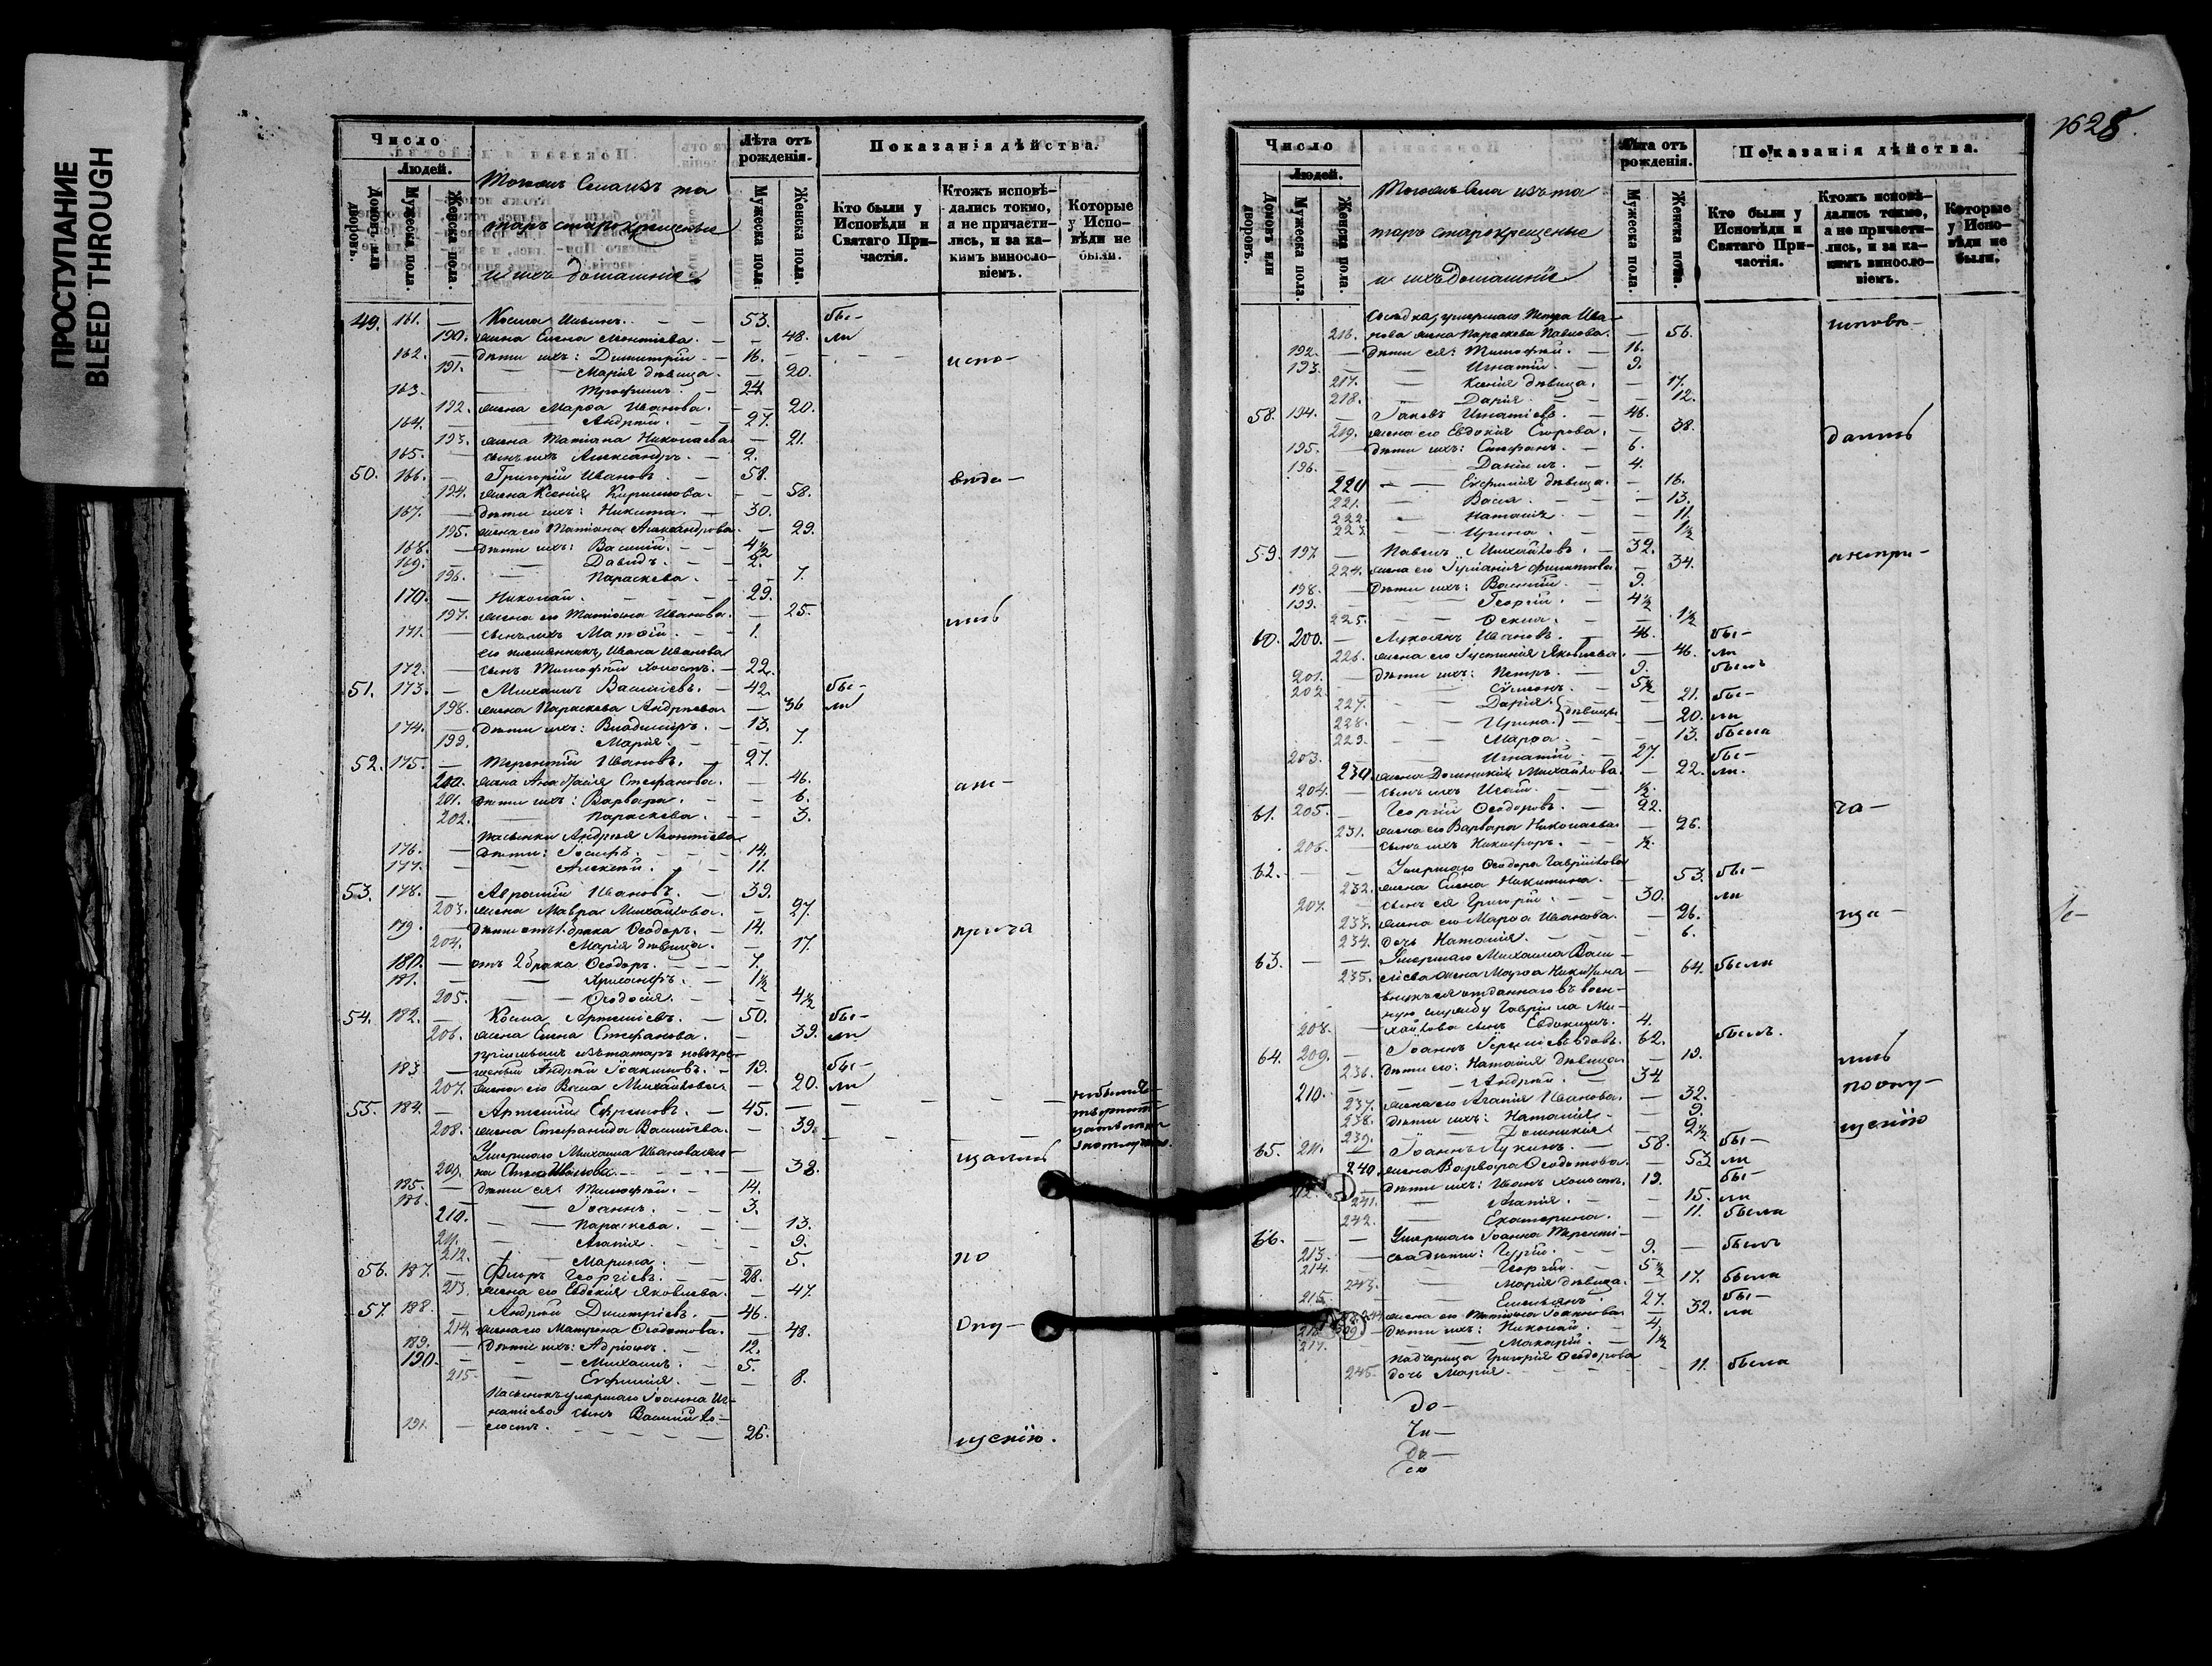 ПРОСТУПАНИЕ
BLEED THROUGH
Число
Людей.
Домовъ или дворовъ.
Мужеска пола.
Женска пола.
Тогожъ Села изъ та
таръ старокрещеные
и ихъ домашніе
Лѣта отъ рожденія.
Мужеска пола.
Женска пола.
Показанія дѣйства.
Кто были у Исповѣди и Святаго Причастія.
Ктожъ исповѣдались токмо, а не причастились, и за какимъ винословіемъ.
Которые у Исповѣди не были.
49. 161. — Косма Ильинъ. 53. бы-
190. жена Елена Леонтіева. — 48. ли
162. — дѣти ихъ: Димитрій — 16. испо-
191. — Марія дѣвица. — 20.
163. — Трофимъ. — 24.
192. жена Марѳа Иванова. — 20.
164. — Андрей. — 27.
193. жена Татіана Николаева — 21.
165. — сынъ ихъ Александръ. — 2.
50. 166. — Григорій Ивановъ. — 58. вѣда-
194. жена Ксенія Кириллова. — 58.
167. — дѣти ихъ: Никита. — 30.
195. жена его Татіана Александрова. — 29.
168. — дѣти ихъ: Василій. — 4 1/2
169. — Давидъ. — 2.
196. — Параскева. — 7.
170. — Николай. — 29.
197. жена его Татіана Иванова. — 25. лись
171. — сынъ ихъ Матѳій. — 1.
его племянникъ, Ивана Иванова
172. — сынъ Тимофей холостъ. — 22.
51. 173. — Михаилъ Васильевъ. — 42. бы-
198. жена Параскева Андреева — 36 ли
174. — дѣти ихъ: Владиміръ. — 13.
199. Марія. — 7.
52. 175. — Терентій Ивановъ. — 27.
200. жена Стефанова. — 46. а не-
201. дѣти ихъ: Варвара. — 6.
202. — Параскева. — 3.
пасынки Андрея Леонтіева
176. — дѣти: Іосифъ. — 14.
177. — Алексѣй. — 11.
53. 178. — Аврамій Ивановъ. — 39.
203. жена Мавра Михайлова. — 27.
179. — дѣти отъ 1 брака Ѳеодоръ. — 14. прича
204. Марія дѣвица. — 17.
180. — отъ 2 брака Ѳеодоръ. — 7.
181. — Хрисанфъ. — 1 1/2
205. — Ѳеодосія. — 4 1/2
54. 182. — Косма Артеміевъ. — 50. бы-
206. жена Елена Стефанова. — 39. ли
изъ татаръ новокре-
183 — щеный Андрей Іоакимовъ. — 19. бы-
207. жена его Васса Михайлова — 20. ли
55. 184. — Артемій Ефремовъ. — 45. —
208. жена Стефанида Васильева. — 39.
Умершаго Михаила Иванова же-
209. на Анна Иванова — 38. щались
185. — дѣти ея: Тимофей. — 14.
186. — Іоаннъ. — 3.
210. — Параскева. — 13.
211. — Агапія. — 9.
212. — Марина. — 5. по
56. 187. — Флоръ Георгіевъ. — 28.
213. жена его Евдокія Яковлева. — 47.
57. 188. — Андрей Димитріевъ. — 46.
214. жена его Матрона Ѳедотова. — 48. опу-
189. — дѣти ихъ: Адріанъ. — 12.
190. — Михаилъ. — 5.
215. — Евфимія. — 8.
Пасынокъ умершаго Іоанна Иг-
натіева сынъ Василій хо-
191. — лостъ. — 26. щенію.
1628.
Число
Людей.
Домовъ или дворовъ.
Мужеска пола.
Женска пола.
Тогожъ Села изъ та
таръ старокрещеные
и ихъ Домашніе
Лѣта отъ рожденія.
Мужеска пола.
Женска пола.
Показанія дѣйства.
Кто были у Исповѣди и Святаго Причастія.
Ктожъ исповѣдались токмо, а не причастились, и за какимъ винословіемъ.
Которые у Исповѣди не были.
умершаго Петра Ива- исповѣ-
216. нова жена Параскева Павлова. — 56.
192. — дѣти ея: Тимофей. — 16.
193. — Игнатій. — 9.
217. — Ксенія дѣвица. — 17.
218. — Дарія. — 12.
58. 194. — Іаковъ Игнатіевъ. — 46.
219. жена его Евдокія Егорова. — 38. дались
195. — дѣти ихъ: Стефанъ. — 6.
196. — Даніилъ. — 4.
220 — Евфимія дѣвица. — 16.
221. — Васса. — 13.
222. — Наталія — 11.
223. — Ирина. — 1 1/2
59. 197. — Павелъ Михайловъ. — 32. а не при-
224. жена его Филиппова. — 34.
198. — дѣти ихъ: Василій. — 9.
199. — Георгій. — 4 1/2
225. — Ѳекла. — 1 1/2
60. 200. — Лукіанъ Ивановъ. — 46. бы-
226. жена его Іустинія Яковлева. — 46. ли
201. — дѣти ихъ: Петръ. — 9. былъ
202. Сѵмеонъ. — 5 1/2
227. — Дарія } дѣвицы — 21. бы-
228. — Ирина } — 20. ли
229. — Марѳа — 13. была
203. Игнатій — 27. бы-
230. жена Домникія Михайлова. — 22. ли.
204. — сынъ ихъ Исай. — 1/2.
61. 205. — Георгій Ѳеодоровъ. — 22. ча-
231. жена его Варвара Николаева. — 26.
206. — сынъ ихъ Никифоръ. — 1/2.
62. — — Умершаго Ѳеодора Гавріилова
232. жена Елена Никитина. — 53. бы-
207. — сынъ ея Григорій. — 30. ли
233. жена его Марѳа Иванова. — 26. ща-
234. дочь Наталія. — 6.
63. — — Умершаго Михаила Васи-
235. ліева жена Марѳа Никитина — 64. была
внукъ ея отданнаго въ воен-
ную службу Гавріила Ми-
208. — хайлова сынъ Евдокимъ. 4.
64. 209. — Іоаннъ вдовъ. 62. былъ.
236. дѣти его: Наталія дѣвица — 19. лись
210. — Андрей. — 34 по опу-
237. жена его Агапія Иванова. — 32.
238. дѣти ихъ: Наталія — 9. щенію
239. — Домникія — 2 1/2
65. 211. — Іоаннъ Лукинъ. — 58. бы-
240 жена Варвара Ѳедотова. — 53 ли
212. — дѣти ихъ: Иванъ холостъ. 19. бы
241. — Агапія. — 15. ли
242. — Екатерина. — 11. была
66. — — Умершаго Іоанна Теренті-
213. ева дѣти: Гурій. — 9. — былъ
214. — Георгій. — 5 1/2
243. — Марія дѣвица. — 17. была
215. — Емельянъ. 27. бы-
244. жена его Татіана Іоаннова — 32. ли
216. дѣти ихъ: Николай. — 4.
217. — Макарій. — 1 1/2
Падчерица Григорія Ѳеодорова
245. дочь Марія. — 11. была